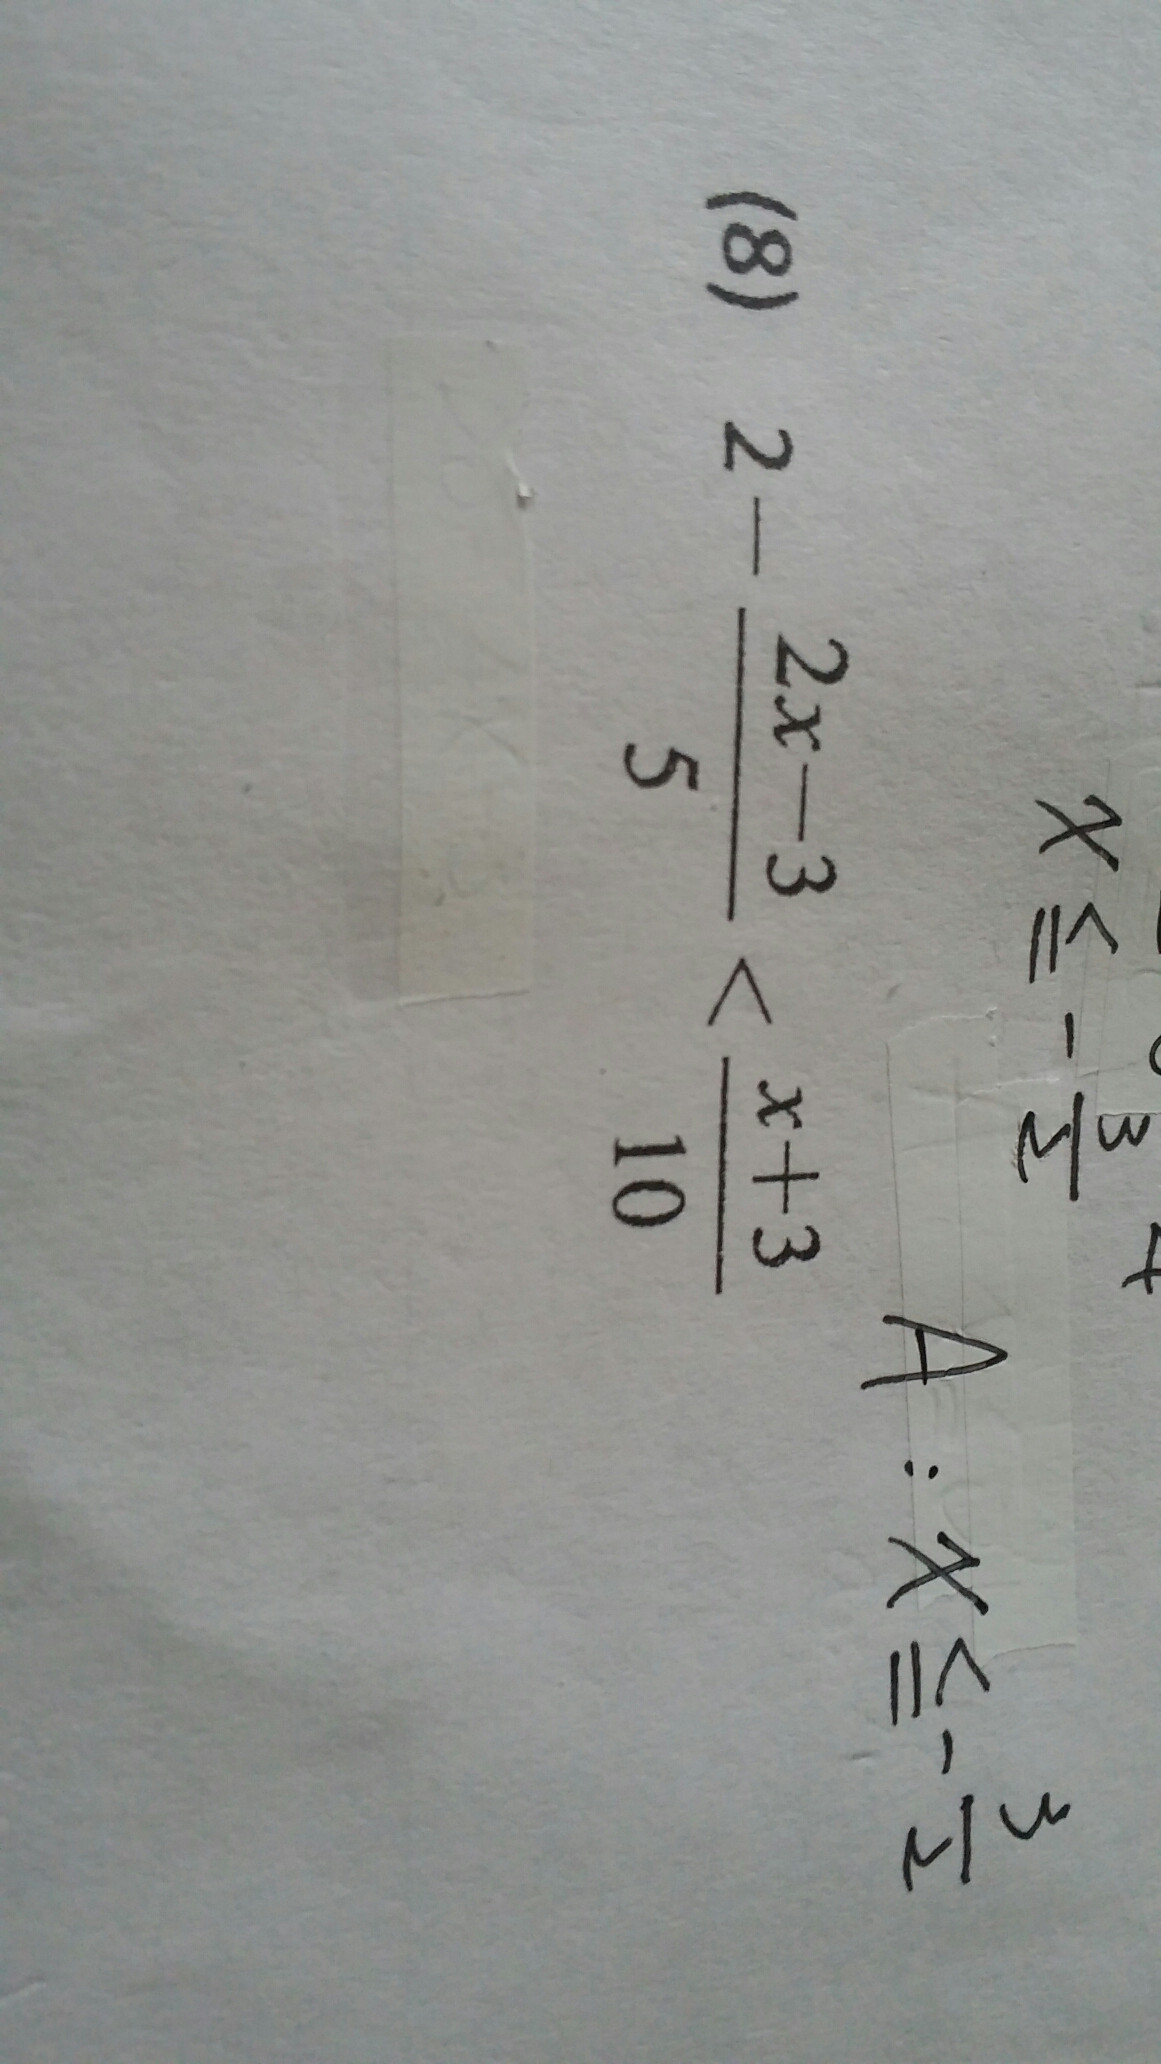 x ≦ -3/2
A : x ≦ -3/2
(8) 2 - (2x-3)/5 < (x+3)/10